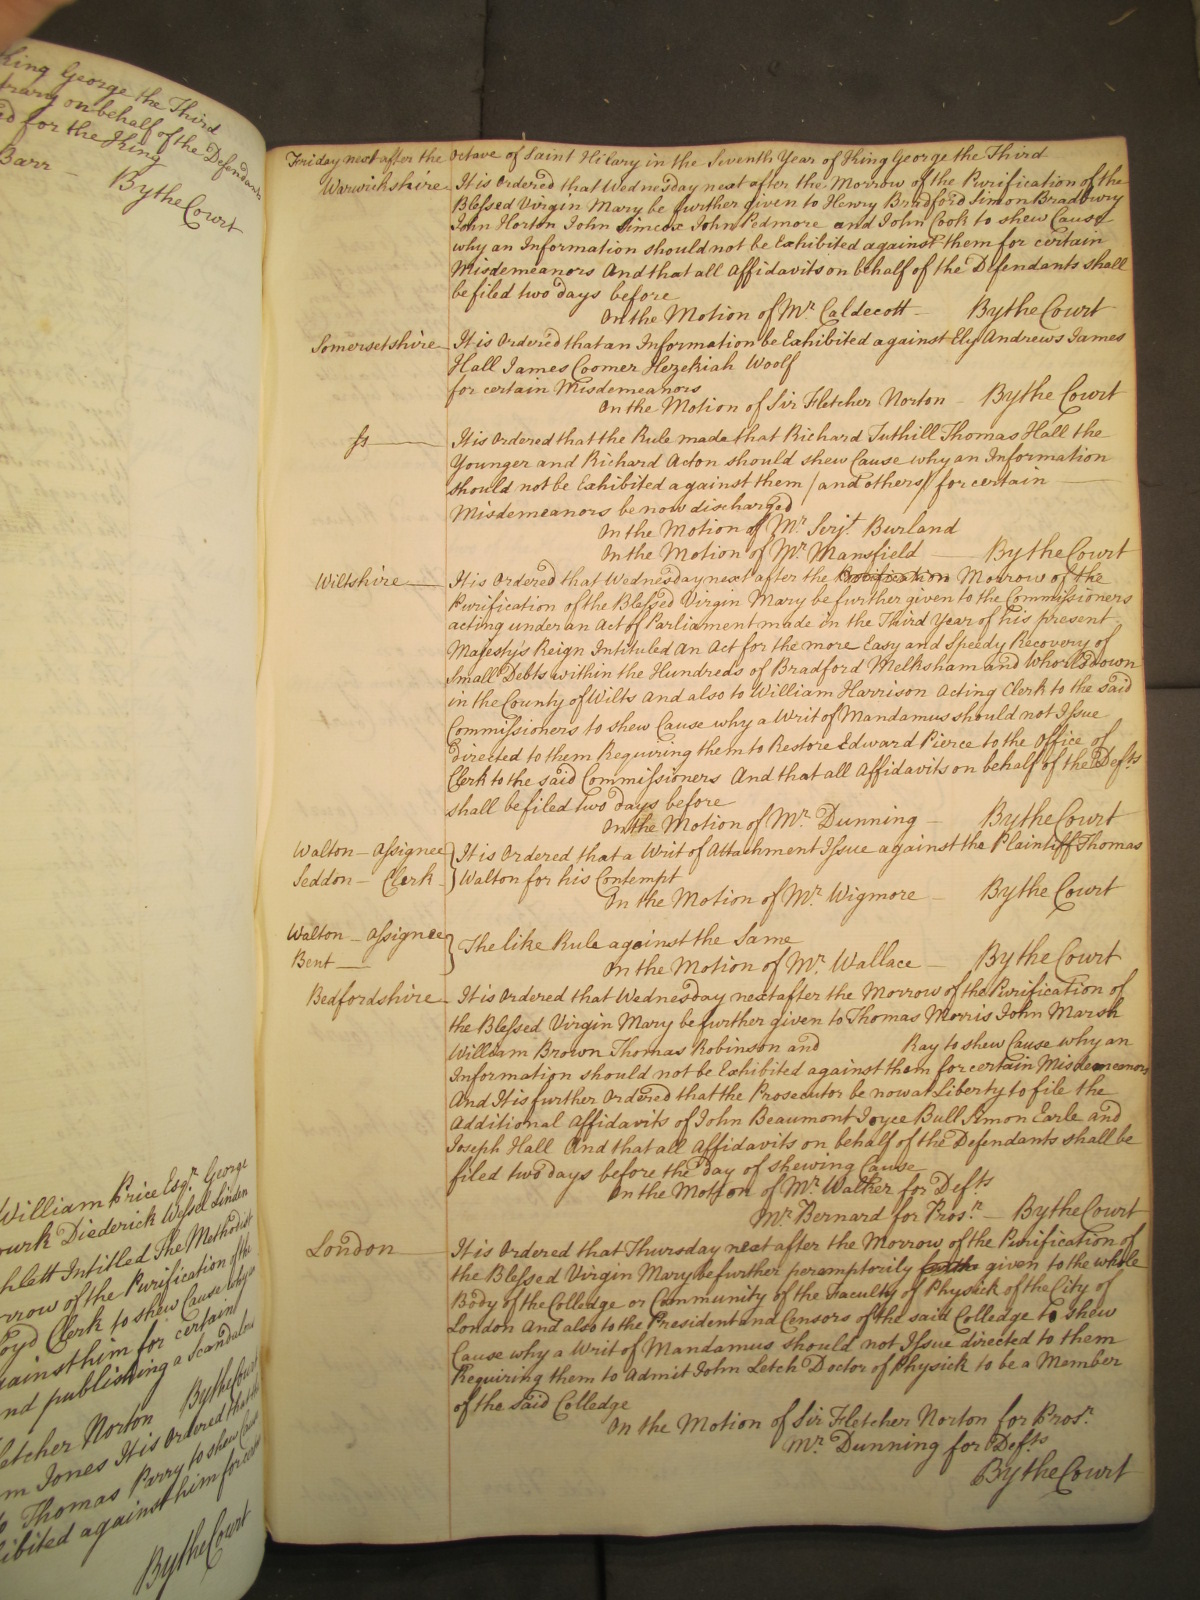 King George the Third
on behalf of the Defendants
for the King
Barr —
By the Court
William Price Esqr. George
Diederick Wessel Linden
Intitled The Methodist
of the Purification of the
Clerk to shew Cause why
against him for certain
and publishing a Scandalous
Fletcher Norton By the Court
Jones It is Ordered that
Thomas Parry to shew Cause
against him for certain
By the Court
Friday next after the Octave of Saint Hilary in the Seventh Year of King George the Third
Warwickshire It is Ordered that Wednesday next after the Morrow of the Purification of the
Blessed Virgin Mary be further given to Henry Bradford Simon Bradbury
John Horton John Simcox John Pedmore and John Cook to shew Cause
why an Information should not be Exhibited against them for certain
Misdemeanors And that all Affidavits on behalf of the Defendants shall
be filed two days before
On the Motion of Mr. Caldecott — By the Court
Somersetshire It is Ordered that an Information be Exhibited against Ely Andrews James
Hall James Coomer Hezekiah Woolf
for certain Misdemeanors
On the Motion of Sir Fletcher Norton — By the Court
ss — It is Ordered that the Rule made that Richard Tuthill Thomas Hall the
Younger and Richard Acton should shew Cause why an Information
should not be Exhibited against them (and others) for certain —
Misdemeanors be now discharged
On the Motion of Mr. Serjt. Burland
On the Motion of Mr. Mansfield — By the Court
Wiltshire — It is Ordered that Wednesday next after the Purification Morrow of the
Purification of the Blessed Virgin Mary be further given to the Commissioners
acting under an Act of Parliament made in the Third Year of his present
Majestys Reign Intituled An Act for the more Easy and Speedy Recovery of
Small Debts within the Hundreds of Bradford Melksham and Whorlsdown
in the County of Wilts And also to William Harrison Acting Clerk to the said
Commissioners to shew Cause why a Writ of Mandamus should not Issue
directed to them Requiring them to Restore Edward Pierce to the Office of
Clerk to the said Commissioners And that all Affidavits on behalf of the Defts
shall be filed two days before
On the Motion of Mr. Dunning — By the Court
Walton — Assignee } It is Ordered that a Writ of Attachment Issue against the Plaintiff Thomas
Seddon — Clerk } Walton for his Contempt
On the Motion of Mr. Wigmore — By the Court
Walton — Assignee } The like Rule against the Same
Bent —
On the Motion of Mr. Wallace — By the Court
Bedfordshire — It is Ordered that Wednesday next after the Morrow of the Purification of
the Blessed Virgin Mary be further given to Thomas Morris John Marsh
William Brown Thomas Robinson and Ray to shew Cause why an
Information should not be Exhibited against them for certain Misdemeanors
And It is further Ordered that the Prosecutor be now at Liberty to file the
Additional Affidavits of John Beaumont Joyce Bull Simon Earle and
Joseph Hall And that all Affidavits on behalf of the Defendants shall be
filed two days before the day of shewing Cause
On the Motion of Mr. Walker for Defts
Mr. Bernard for Prosr. — By the Court
London — It is Ordered that Thursday next after the Morrow of the Purification of
the Blessed Virgin Mary be further peremptorily given to the whole
Body of the Colledge or Community of the Faculty of Physick of the City of
London And also to the President and Censors of the said Colledge to shew
Cause why a Writ of Mandamus should not Issue directed to them
Requiring them to Admit John Letch Doctor of Physick to be a Member
of the said Colledge
On the Motion of Sir Fletcher Norton for Prosr.
Mr. Dunning for Defts
By the Court